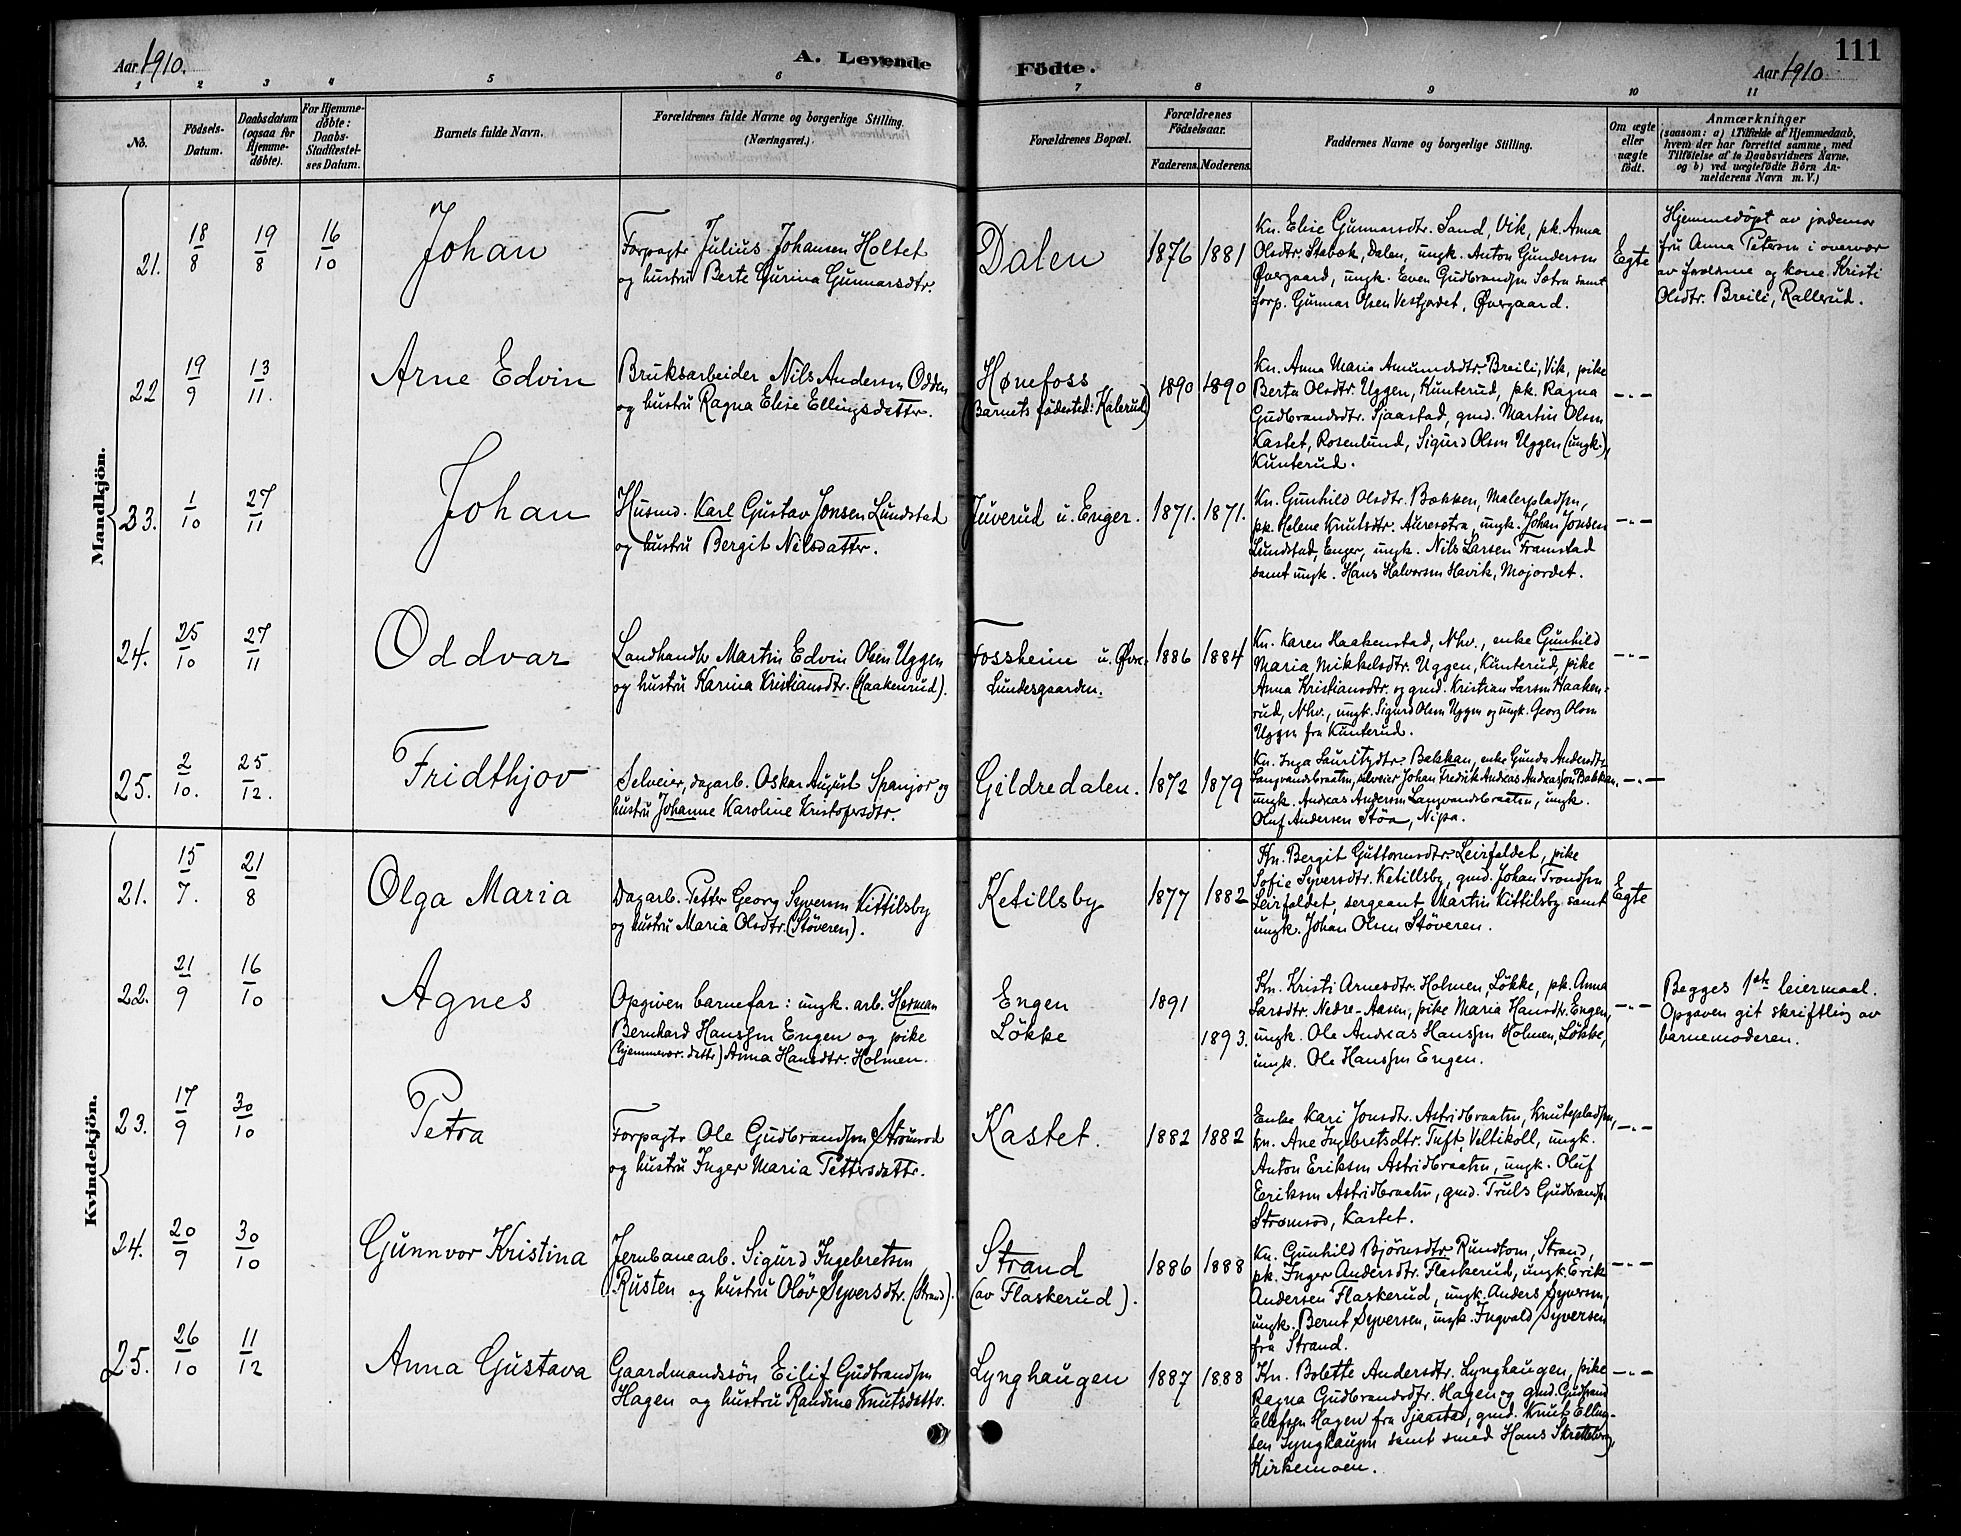 Aar 1910.
A. Levende Födte.
Aar 1910
111
1 2 3 4 5 6 7 8 9 10 11
No.
Födsels-Datum.
Daabsdatum (ogsaa for Hjemme-døbte).
For Hjemme-døbte: Daabs-Stadfestel-ses Datum.
Barnets fulde Navn.
Forældrenes fulde Navne og borgerlige Stilling. (Næringsvei.)
Forældrenes Bopæl.
Forældrenes Födselsaar.
Faderens. Moderens.
Faddernes Navne og borgerlige Stilling.
Om ægte eller uægte født.
Anmærkninger
(saasom: a) i Tilfælde af Hjemmedaab,
hvem der har forrettet samme, med
Tilføielse af to Daabsvidners Navne,
og b) ved uægtefödte Börn An-
melderens Navn m. V.)
Mandkjön.
21. 18/8 19/8 16/10 Johan
Forpagtr Julius Johansen Holtet
og hustru Berte Gurina Gunnarsdtr.
Dalen 1876 1881
Kn. Elise Gunnarsdtr. Sand, Vik, pk. Anna
Olsdtr. Stabæk, Dalen, ungk. Anton Gundersen
Øvergaard, ungk. Even Gudbrandsen Sætra samt
forp. Gunnar Olsen Vestjordet, Øvergaard.
Egte
Hjemmedøpt av jordemor
fru Anna Petersen i overvær
av forældrene og kone Kristi
Olsdtr. Breili, Rallerud.
22 19/9 13/11. Arne Edvin
Bruksarbeider Nils Andersen Odden
og hustru Ragna Elise Ellingsdatter.
Hønefoss
(Barnets fødested: Kalerud)
1890 1890
Kn. Anna Maria Amundsdtr. Breili, Vik, pike
Berta Olsdtr. Uggen, Kunterud, pk. Ragna
Gudbrandsdtr. Sjaastad, gmd. Martin Olsen
Kastet, Rosenlund, Sigurd Olsen Uggen (ungk.),
Kunterud.
—"—
23. 1/10 27/11 Johan
Husmd. Karl Gustav Jonsen Lundstad
og hustru Bergit Nilsdatter.
Juverud u. Enger. 1871. 1871.
Kn. Gunhild Olsdtr. Bækken, Malerpladsen,
pk. Helene Knutsdtr. Auresætra, ungk. Johan Jonsen
Lundstad, Enger, ungk. Nils Larsen Framstad
samt ungk. Hans Halvorsen Havik, Mojordet.
—"—
24. 25/10 27/11 Oddvar
Landhandlr Martin Edvin Olsen Uggen
og hustru Karina Kristiansdtr. (Haakenrud).
Fossheim u. Øvre
Lundesgaarden.
1886 1884
Kn. Karen Haakenstad, Nhv., enke Gunhild
Maria Mikkelsdtr. Uggen, Kunterud, pike
Anna Kristiansdtr. og gmd. Kristian Larsen Haaken-
rud, Nhv., ungk. Sigurd Olsen Uggen og ungk. Georg Olsen
Uggen fra Kunterud.
—"—
25. 2/10. 25/12. Fridthjov
Selveier, dagarb. Oskar August Spanjor og
hustru Johanne Karoline Kristofersdtr.
Gildredalen. 1872 1879
Kn. Inga Lauritzdtr. Bakkan, enke Gunda Andersdtr.
Langvandsbraaten, selveier Johan Fredrik Andreas Andreassen Bakkan,
ungk. Andreas Andersen Langvandsbraaten, ungk.
Oluf Andersen Støa, Nipa.
—"—
Kvindekjön.
21. 15/7. 21/8 Olga Maria
Dagarb. Petter Georg Syversen Kittilsby
og hustru Maria Olsdtr. (Støveren).
Ketillsby 1877 1882
Kn. Bergit Guttormsdtr. Leirfaldet, pike
Sofie Syversdtr. Ketillsby, gmd. Johan Trondsen
Leirfaldet, sergeant Martin Kittilsby samt
ungk. Johan Olsen Støveren.
Egte
22. 21/9 16/10 Agnes
Opgiven barnefar: ungk. arb. Herman
Bernhard Hanssen Engen og pike
(hjemmevær. datter) Anna Hansdtr. Holmen.
Engen
Løkke
1891 1893.
Kn. Kristi Arnesdtr. Holmen, Løkke, pk. Anna
Larsdtr. Nedre-Aasen, pike Maria Hansdtr. Engen,
ungk. Ole Andreas Hanssen Holmen, Løkke,
ungk. Ole Hanssen Engen.
—"—
Begges 1ste leiermaal.
Opgaven git skriftlig av
barnemoderen.
23. 17/9 30/10 Petra
Forpagtr Ole Gudbrandsen Strømsod
og hustru Inger Maria Pettersdatter.
Kastet. 1882 1882
Enke Kari Jonsdtr. Astridbraaten, Knutepladsen,
kn. Ane Ingebretsdtr. Tuft, Veltikoll, ungk.
Anton Eriksen Astridbraaten, ungk. Oluf
Eriksen Astridbraaten, gmd. Truls Gudbrands.
Strømsod, Kastet.
—"—
24. 20/9 30/10 Gunnvor Kristina
Jernbanearb. Sigurd Ingebretsen
Rusten og hustru Olöv Syversdtr. (Strand).
Strand
(av Flaskerud).
1886 1888
Kn. Gunhild Björnsdtr. Rundtom, Strand,
pk. Inger Andersdtr. Flaskerud, ungk. Erik
Andersen Flaskerud, ungk. Anders Syversen,
ungk. Bernt Syversen, ungk. Ingvald Syversen
fra Strand.
—"—
25. 26/10 11/12 Anna Gustava
Gaardmandssön Eilif Gudbrandsen
Hagen og hustru Randina Knutsdattr.
Lynghaugen 1887 1888
Kn. Bolette Andersdtr. Lynghaugen, pike
Ragna Gudbrandsdtr. Hagen og gmd. Gudbrand
Ellefsen Hagen fra Sjaastad, gmd. Knut Elling-
sen Lynghaugen samt smed Hans Skretteberg,
Kirkemoen.
—"—